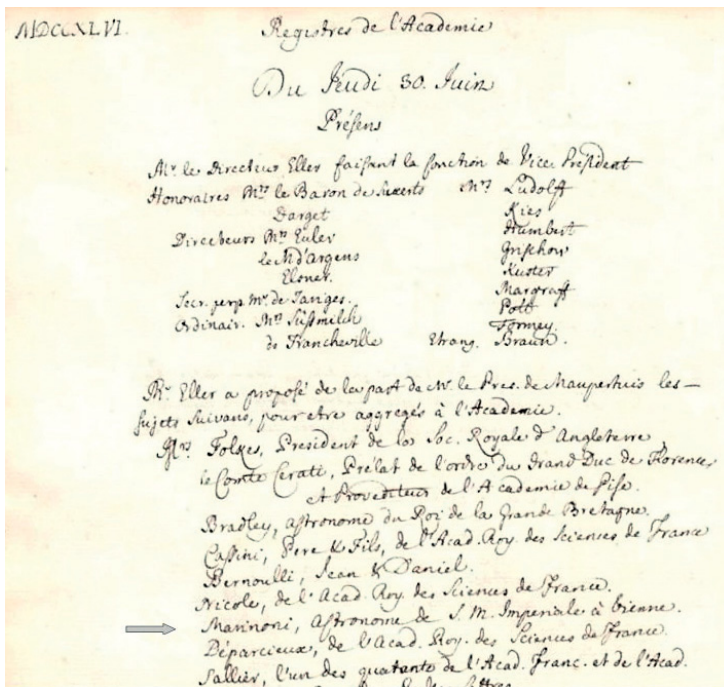 MDCCXLVI.
Registres de l'Academie
Du Jeudi 30. Juin
Présens
Mr. le Directeur Eller faisant la fonction de Vice Président
Honoraires Mrs le Baron de Sweerts Mrs Ludolff
Darget Kies
Directeurs Mrs Euler Humbert
le M d'Argens Grischow
Elsner. Kuster
Secr. perp. Mr. de Jariges. Margraff
Ordinair. Mrs Süßmilch Pott
de Francheville Formey.
Etrang. Braun.
Mr. Eller a proposé de la part de Mr. le Pres. de Maupertuis les
sujets suivans, pour etre aggregés à l'Academie.
Mrs Folkes, President de la Soc. Royale d'Angleterre
le Comte Cerati, Prélat de l'ordre du Grand Duc de Florence,
et Provediteur de l'Academie de Pise.
Bradley, astronome du Roi de la Grande Bretagne.
Cassini, Pere & Fils, de l'Acad. Roy. des Sciences de France
Bernoulli, Jean & Daniel.
Nicole, de l'Acad. Roy. des Sciences de France.
Marinoni, Astronome de S. M. Imperiale à Vienne.
Déparcieux, de l'Acad. Roy. des Sciences de France.
Sallier, l'un des quarante de l'Acad. Franc. et de l'Acad.